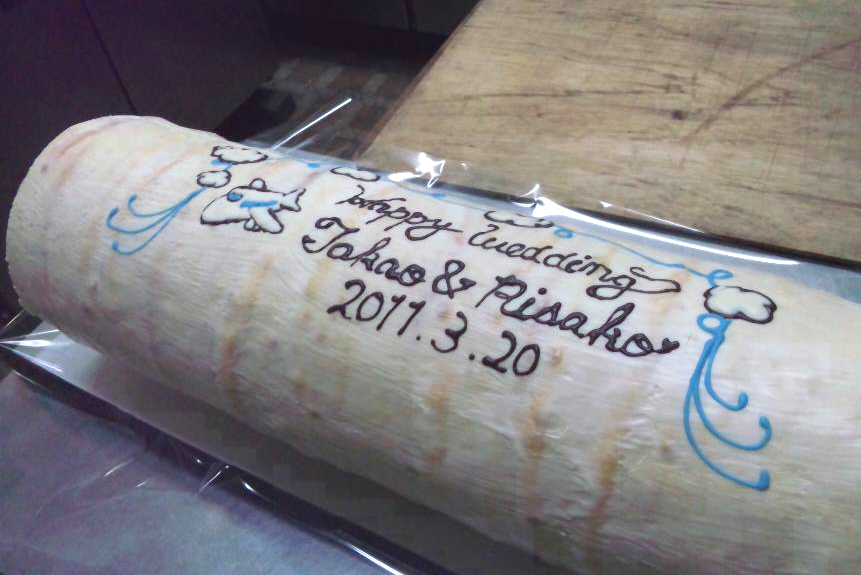 Happy Wedding
Takao & Risako
2011.3.20